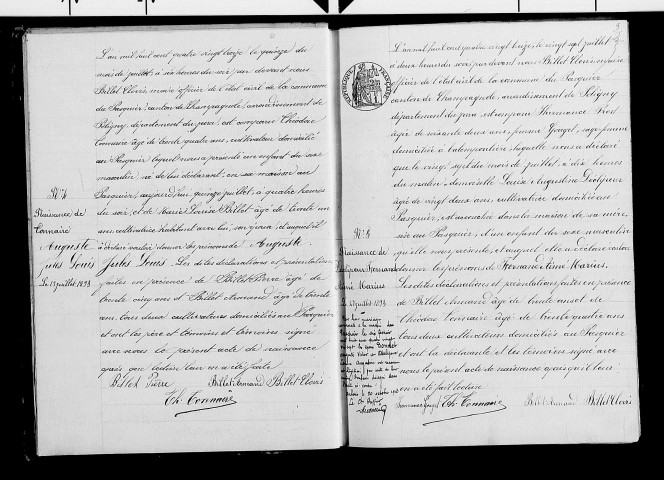 L'an mil huit cent quatre vingt treize le quinze du
mois de juillet, à six heures du soir par devant nous
Billet Clovis, maire officier de l'état civil de la commune
du Pasquier, canton de Champagnole, arrondissement de
Poligny, département du Jura, est comparu Théodore
Tonnaire âgé de trente quatre ans, cultivateur domicilié
au Pasquier lequel nous a présenté un enfant du sexe
masculin, né de lui déclarant, en sa maison au
Pasquier, aujourd'hui quinze juillet, à quatre heures
du soir, et de Marie Louise Billet âgé de trente un
ans cultivatrice habitant avec lui, son épouse, et auquel il
a déclaré vouloir donner les prénoms de Auguste
Jules Louis. Les dites déclarations et présentations
faites en présence de Billet Pierre âgé de
trente cinq ans et Billet Armand âgé de trente
ans tous deux cultivateurs domiciliés au Pasquier
et ont les père et témoins signé
avec nous le présent acte de naissance
après que lecture leur en a été faite
Billet Pierre Billet Armand Billet Clovis
Th. Tonnaire
Naissance de
Tonnaire
Auguste
Jules Louis
Le 15 juillet 1893
L'an mil huit cent quatre vingt treize, le vingt sept juillet
à deux heures du soir, par devant nous Billet Clovis, maire
officier de l'état civil de la commune du Pasquier
canton de Champagnole, arrondissement de Poligny
département du Jura, est comparu
âgée de soixante deux ans, femme sage femme
domiciliée à laquelle nous a déclaré
que le vingt sept du mois de juillet, à dix heures
du matin, demoiselle Louise Augustine
âgée de vingt deux ans, cultivatrice domiciliée au
Pasquier, est accouchée dans la maison de sa mère,
sise au Pasquier, d'un enfant du sexe masculin
qu'elle nous présente, et auquel elle a déclaré vouloir
donner les prénoms de Fernand Aimé Marius.
Les dites déclarations et présentations faites en présence
de Billet Armand âgé de trente ans et de
Théodore Tonnaire âgé de trente quatre ans
tous deux cultivateurs domiciliés au Pasquier
et ont la déclarante et les témoins signé avec
nous le présent acte de naissance après qu'il leur
en a été fait lecture
Th. Tonnaire Billet Armand Billet Clovis
Naissance de
Fernand
Aimé Marius
Le 27 juillet 1893